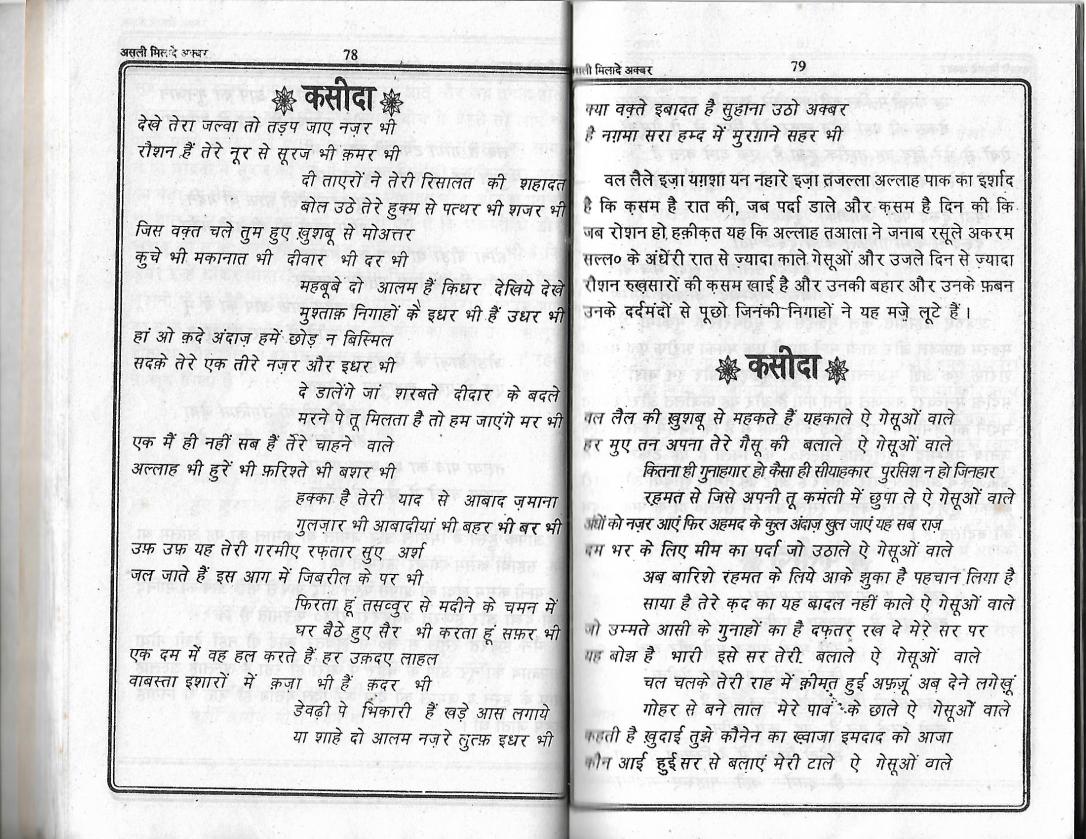 असली मिलादे अक्बर
78
कसीदा
देखे तेरा जल्वा तो तड़प जाए नज़र भी
रौशन हैं तेरे नूर से सूरज भी क़मर भी
दी ताएरों ने तेरी रिसालत की शहादत
बोल उठे तेरे हुक्म से पत्थर भी शजर भी
जिस वक़्त चले तुम हुए ख़ुशबू से मोअत्तर
कूचे भी मकानात भी दीवार भी दर भी
महबूबे दो आलम हैं किधर देखिये देखे
मुश्ताक़ निगाहों के इधर भी हैं उधर भी
हां ओ क़दे अंदाज़ हमें छोड़ न बिस्मिल
सदक़े तेरे एक तीरे नज़र और इधर भी
दे डालेंगे जा शरबते दीदार के बदले
मरने पे तू मिलता है तो हम जाएंगे मर भी
एक मैं ही नहीं सब हैं तेरे चाहने वाले
अल्लाह भी हुरें भी फ़रिश्ते भी बशर भी
हक्का है तेरी याद से आबाद ज़माना
गुलज़ार भी आबादीयां भी बहर भी बर भी
उफ़ उफ़ यह तेरी गरमीए रफ़तार सुए अर्श
जल जाते हैं इस आग में जिबरील के पर भी
फिरता हूं तसव्वुर से मदीने के चमन में
घर बैठे हुए सैर भी करता हूं सफ़र भी
एक दम में वह हल करते हैं हर उक़दए लाहल
वाबस्ता इशारों में क़ज़ा भी हैं क़दर भी
डेवढ़ी पे भिकारी हैं खड़े आस लगाये
या शाहे दो आलम नज़रे लुत्फ़ इधर भी
ाली मिलादे अक्बर
79
क्या वक़्ते इबादत है सुहाना उठो अक्बर
है नग़मा सरा हम्द में मुरग़ाने सहर भी
वल लैले इज़ा यग़शा यन नहारे इज़ा तजल्ला अल्लाह पाक का इर्शाद
है कि क़सम है रात की, जब पर्दा डाले और क़सम है दिन की कि
जब रोशन हो हक़ीक़त यह कि अल्लाह तआला ने जनाब रसूले अकरम
सल्ल० के अंधेरी रात से ज़्यादा काले गेसूओं और उजले दिन से ज़्यादा
रौशन रुख़सारों की क़सम खाई है और उनकी बहार और उनके फ़बन
उनके दर्दमंदों से पूछो जिनकी निगाहों ने यह मज़े लूटे हैं ।
कसीदा
वल लैल की ख़ुशबू से महकते हैं यहकाले ऐ गेसूओं वाले
हर मुए तन अपना तेरे गैसू की बलाले ऐ गेसूओं वाले
कितना ही गुनाहगार हो कैसा ही सीयाहकार पुरसिश न हो जिनहार
रहमत से जिसे अपनी तू कमली में छुपा ले ऐ गेसूओं वाले
अंधों को नज़र आएं फिर अहमद के कूल अंदाज़ खुल जाएं यह सब राज़
दम भर के लिए मीम का पर्दा जो उठाले ऐ गेसूओं वाले
अब बारिशे रहमत के लिये आके झुका है पहचान लिया है
साया है तेरे क़द का यह बादल नहीं काले ऐ गेसूओं वाले
जो उम्मते आसी के गुनाहों का है दफ़तर रख दे मेरे सर पर
यह बोझ है भारी इसे सर तेरी बलाले ऐ गेसूओं वाले
चल चलके तेरी राह में क़ीमत हुई अफ़ज़ूं अब देने लगेखूं
गोहर से बने लाल मेरे पावं के छाले ऐ गेसूओं वाले
कहती है ख़ुदाई तुझे कौनेन का ख्वाजा इमदाद को आजा
कौन आई हुई सर से बलाएं मेरी टाले ऐ गेसूओं वाले